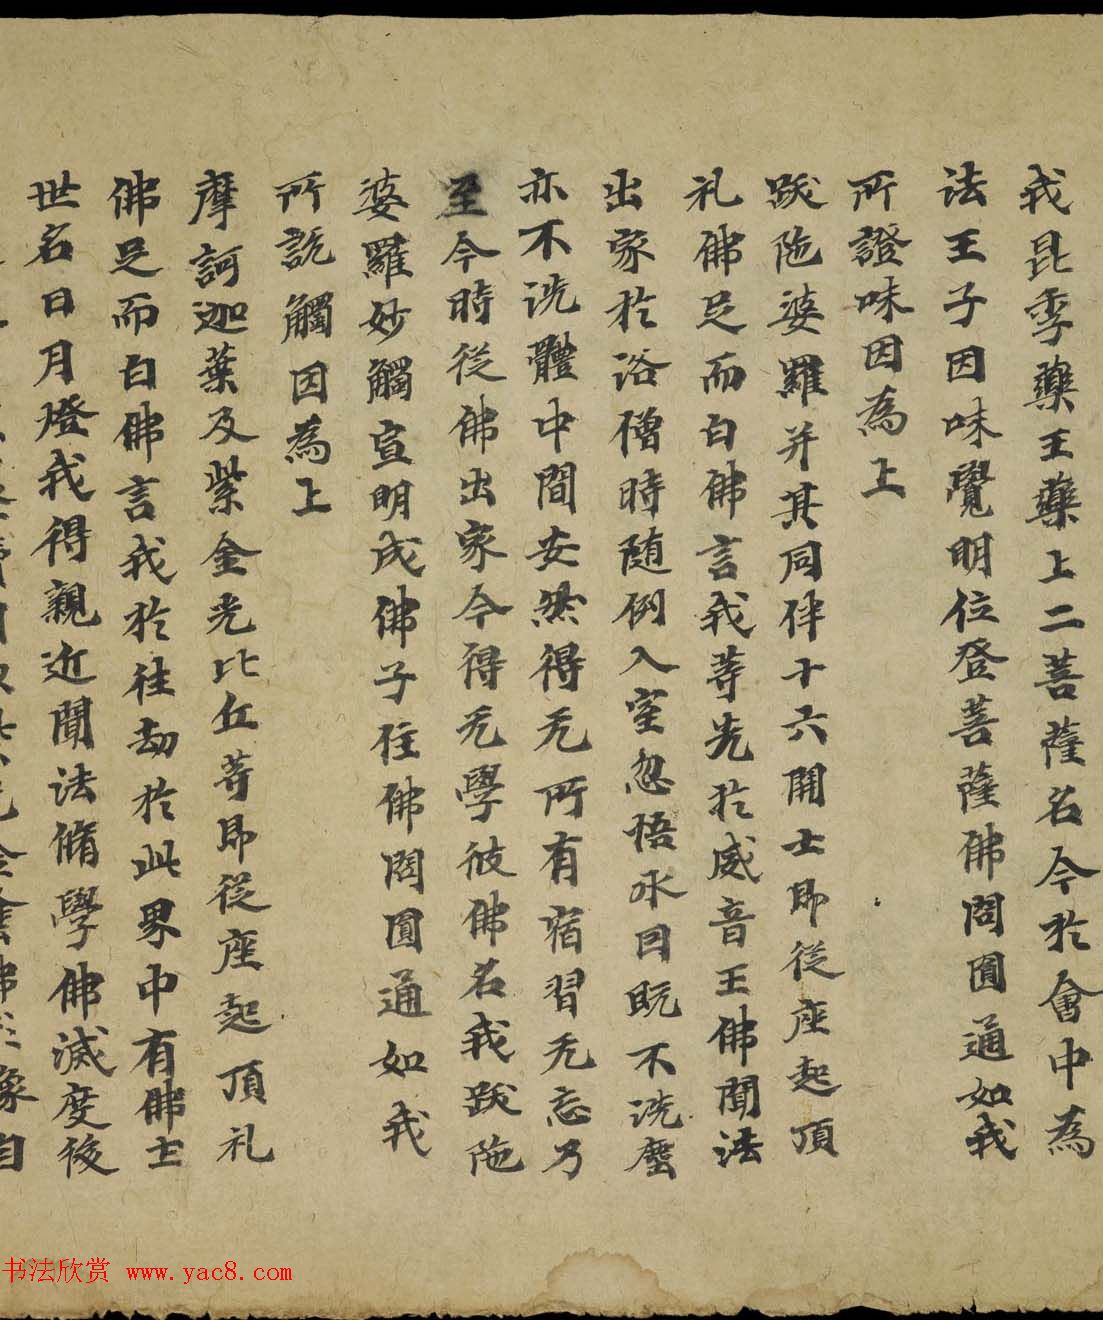 我昆季藥王藥上二菩薩名今於會中為
法王子因味覺明位登菩薩佛問圓通如我
所證味因為上
跋陁婆羅并其同伴十六開士即從座起頂
礼佛足而白佛言我等先於威音王佛聞法
出家於浴僧時随例入室忽悟水因既不洗塵
亦不洗體中間安然得无所有宿習无忘乃
至今時從佛出家今得无學彼佛名我跋陁
婆羅妙觸宣明成佛子住佛問圓通如我
所說觸因為上
摩訶迦葉及紫金光比丘等即從座起頂礼
佛足而白佛言我於往劫於此界中有佛出
世名日月燈我得親近聞法脩學佛滅度後
书法欣赏 www.yac8.com